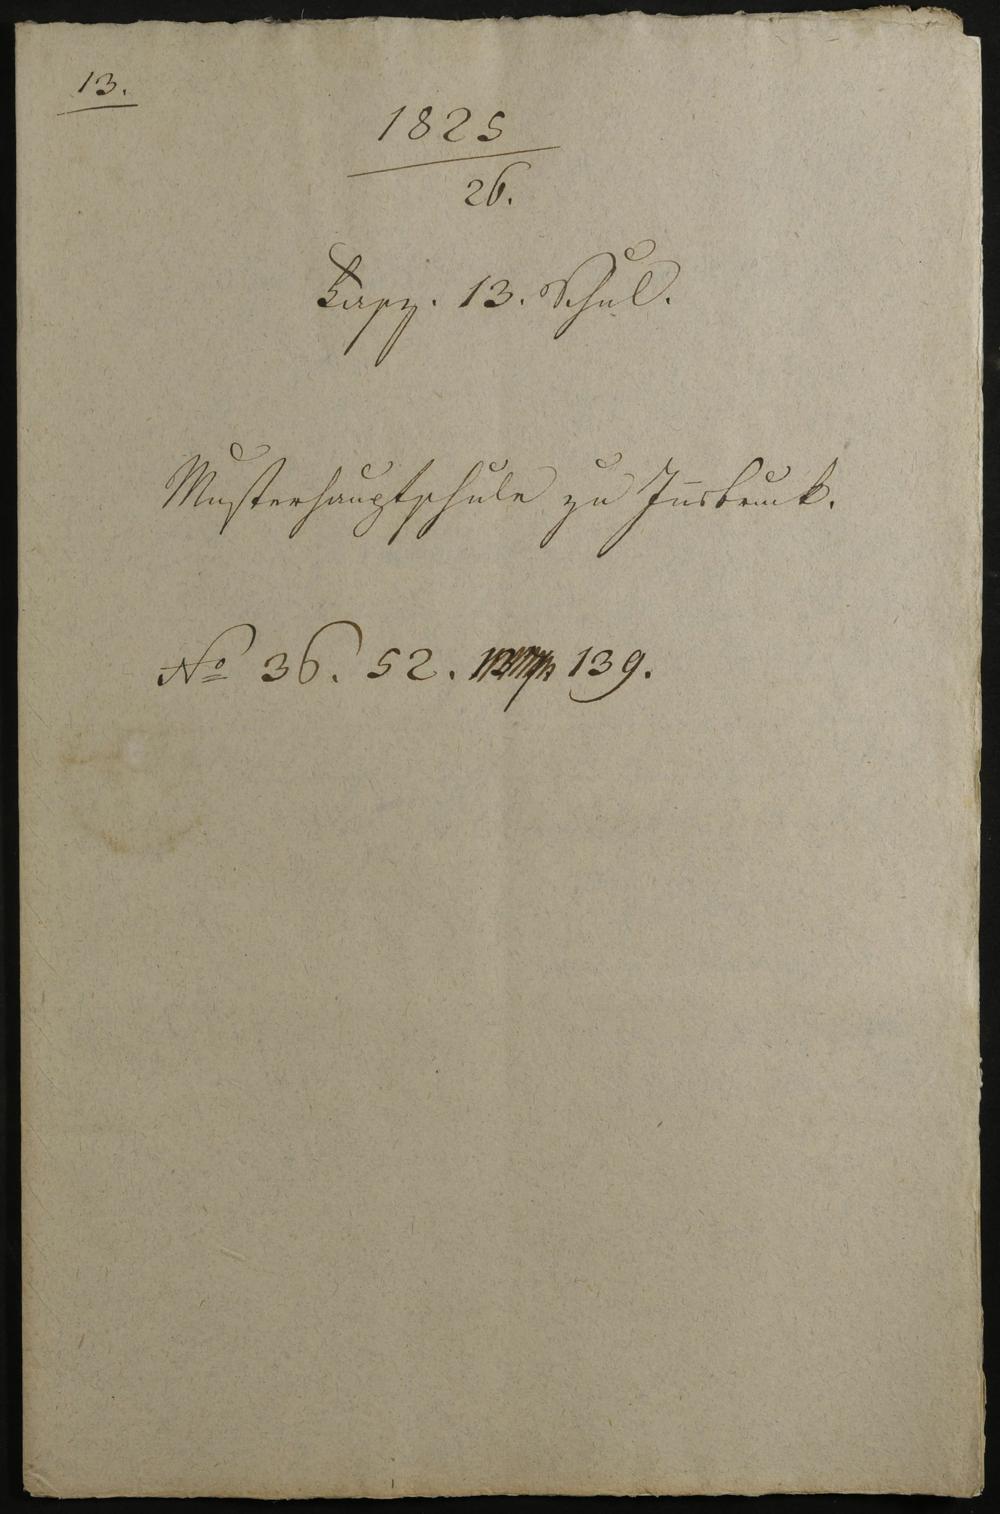 13.
1825
26.
Fasz. 13. Schul.
Musterhauptschule zu Insbruck.
No 36. 52. 139.